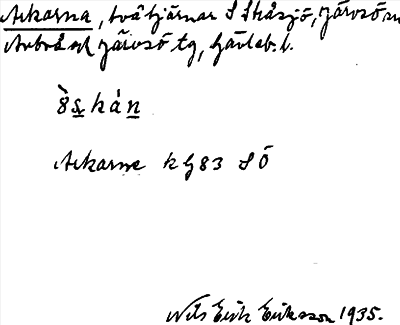 Arkarna, två tjärnar S Skåsjö, Järvsö sn
Arbrå o Järvsö tg, Gävleb. l.
Arkarne k G83 S Ö
Nils Erik Eriksson 1935.